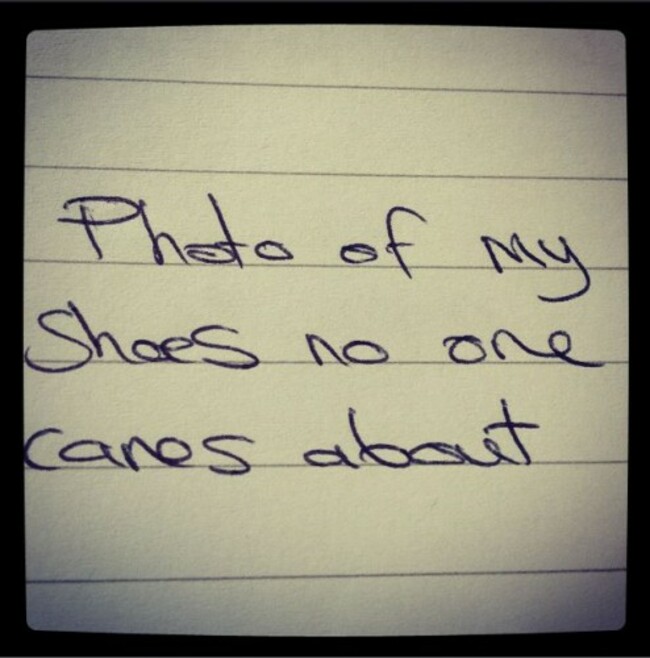 Photo of my
Shoes no one
cares about